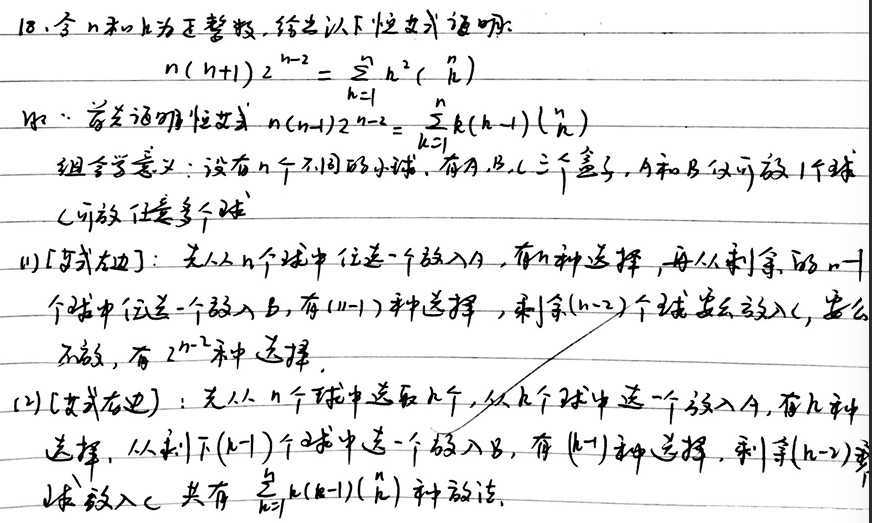 18. 令n和k为正整数,给出以下恒等式证明:
n(n+1)2^{n-2} = \sum_{k=1}^{n} k^2 \binom{n}{k}
首先证明恒等式 n(n-1)2^{n-2} = \sum_{k=1}^{n} k(k-1)\binom{n}{k}
组合学意义:设有n个不同的小球,有A,B,C三个盒子,A和B仅可放1个球
C可放任意多个球
(1)[等式左边]:先从n个球中任选一个放入A,有n种选择,再从剩余的n-1
个球中任选一个放入B,有(n-1)种选择,剩余(n-2)个球要么放入C,要么
不放,有2^{n-2}种选择.
(2)[等式右边]:先从n个球中选取k个,从k个球中选一个放入A,有k种
选择,从剩下(k-1)个球中选一个放入B,有(k-1)种选择,剩余(k-2)个
球放入C 共有 \sum_{k=1}^{n} k(k-1)\binom{n}{k} 种放法.